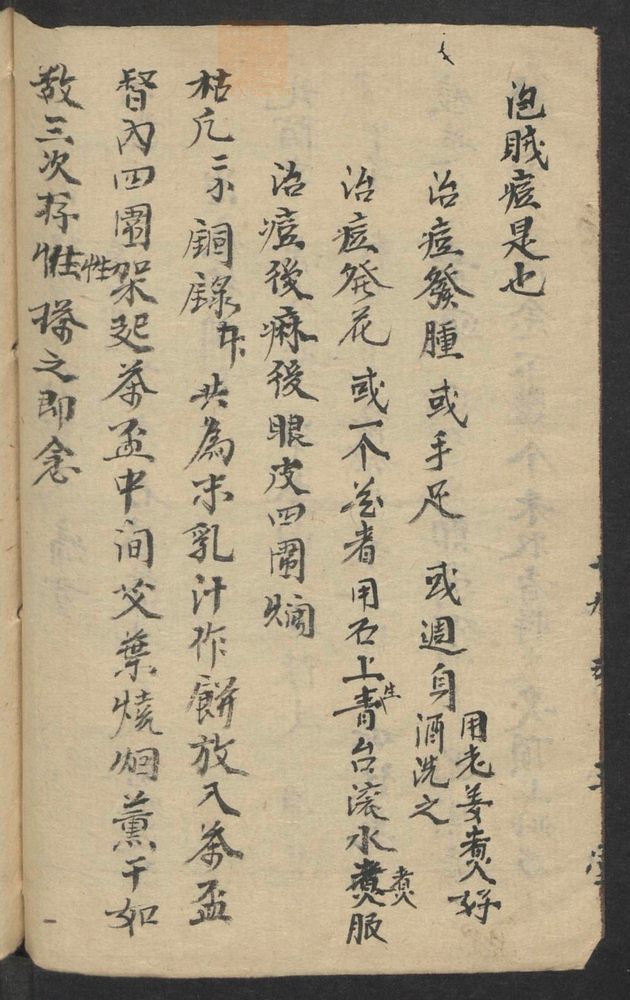 泡賊痘是也
治痘發腫或手足或週身用老姜煑好酒洗之
治痘発花或一个花者用石上生青台滚水煑煑服
治痘後痳後眼皮四圍爛
枯凡二 銅錄 共為末乳汁作餅放入茶盃
督內四圍架起茶盃中间艾葉燒烟薰干如
敷三次存性 搽之即愈